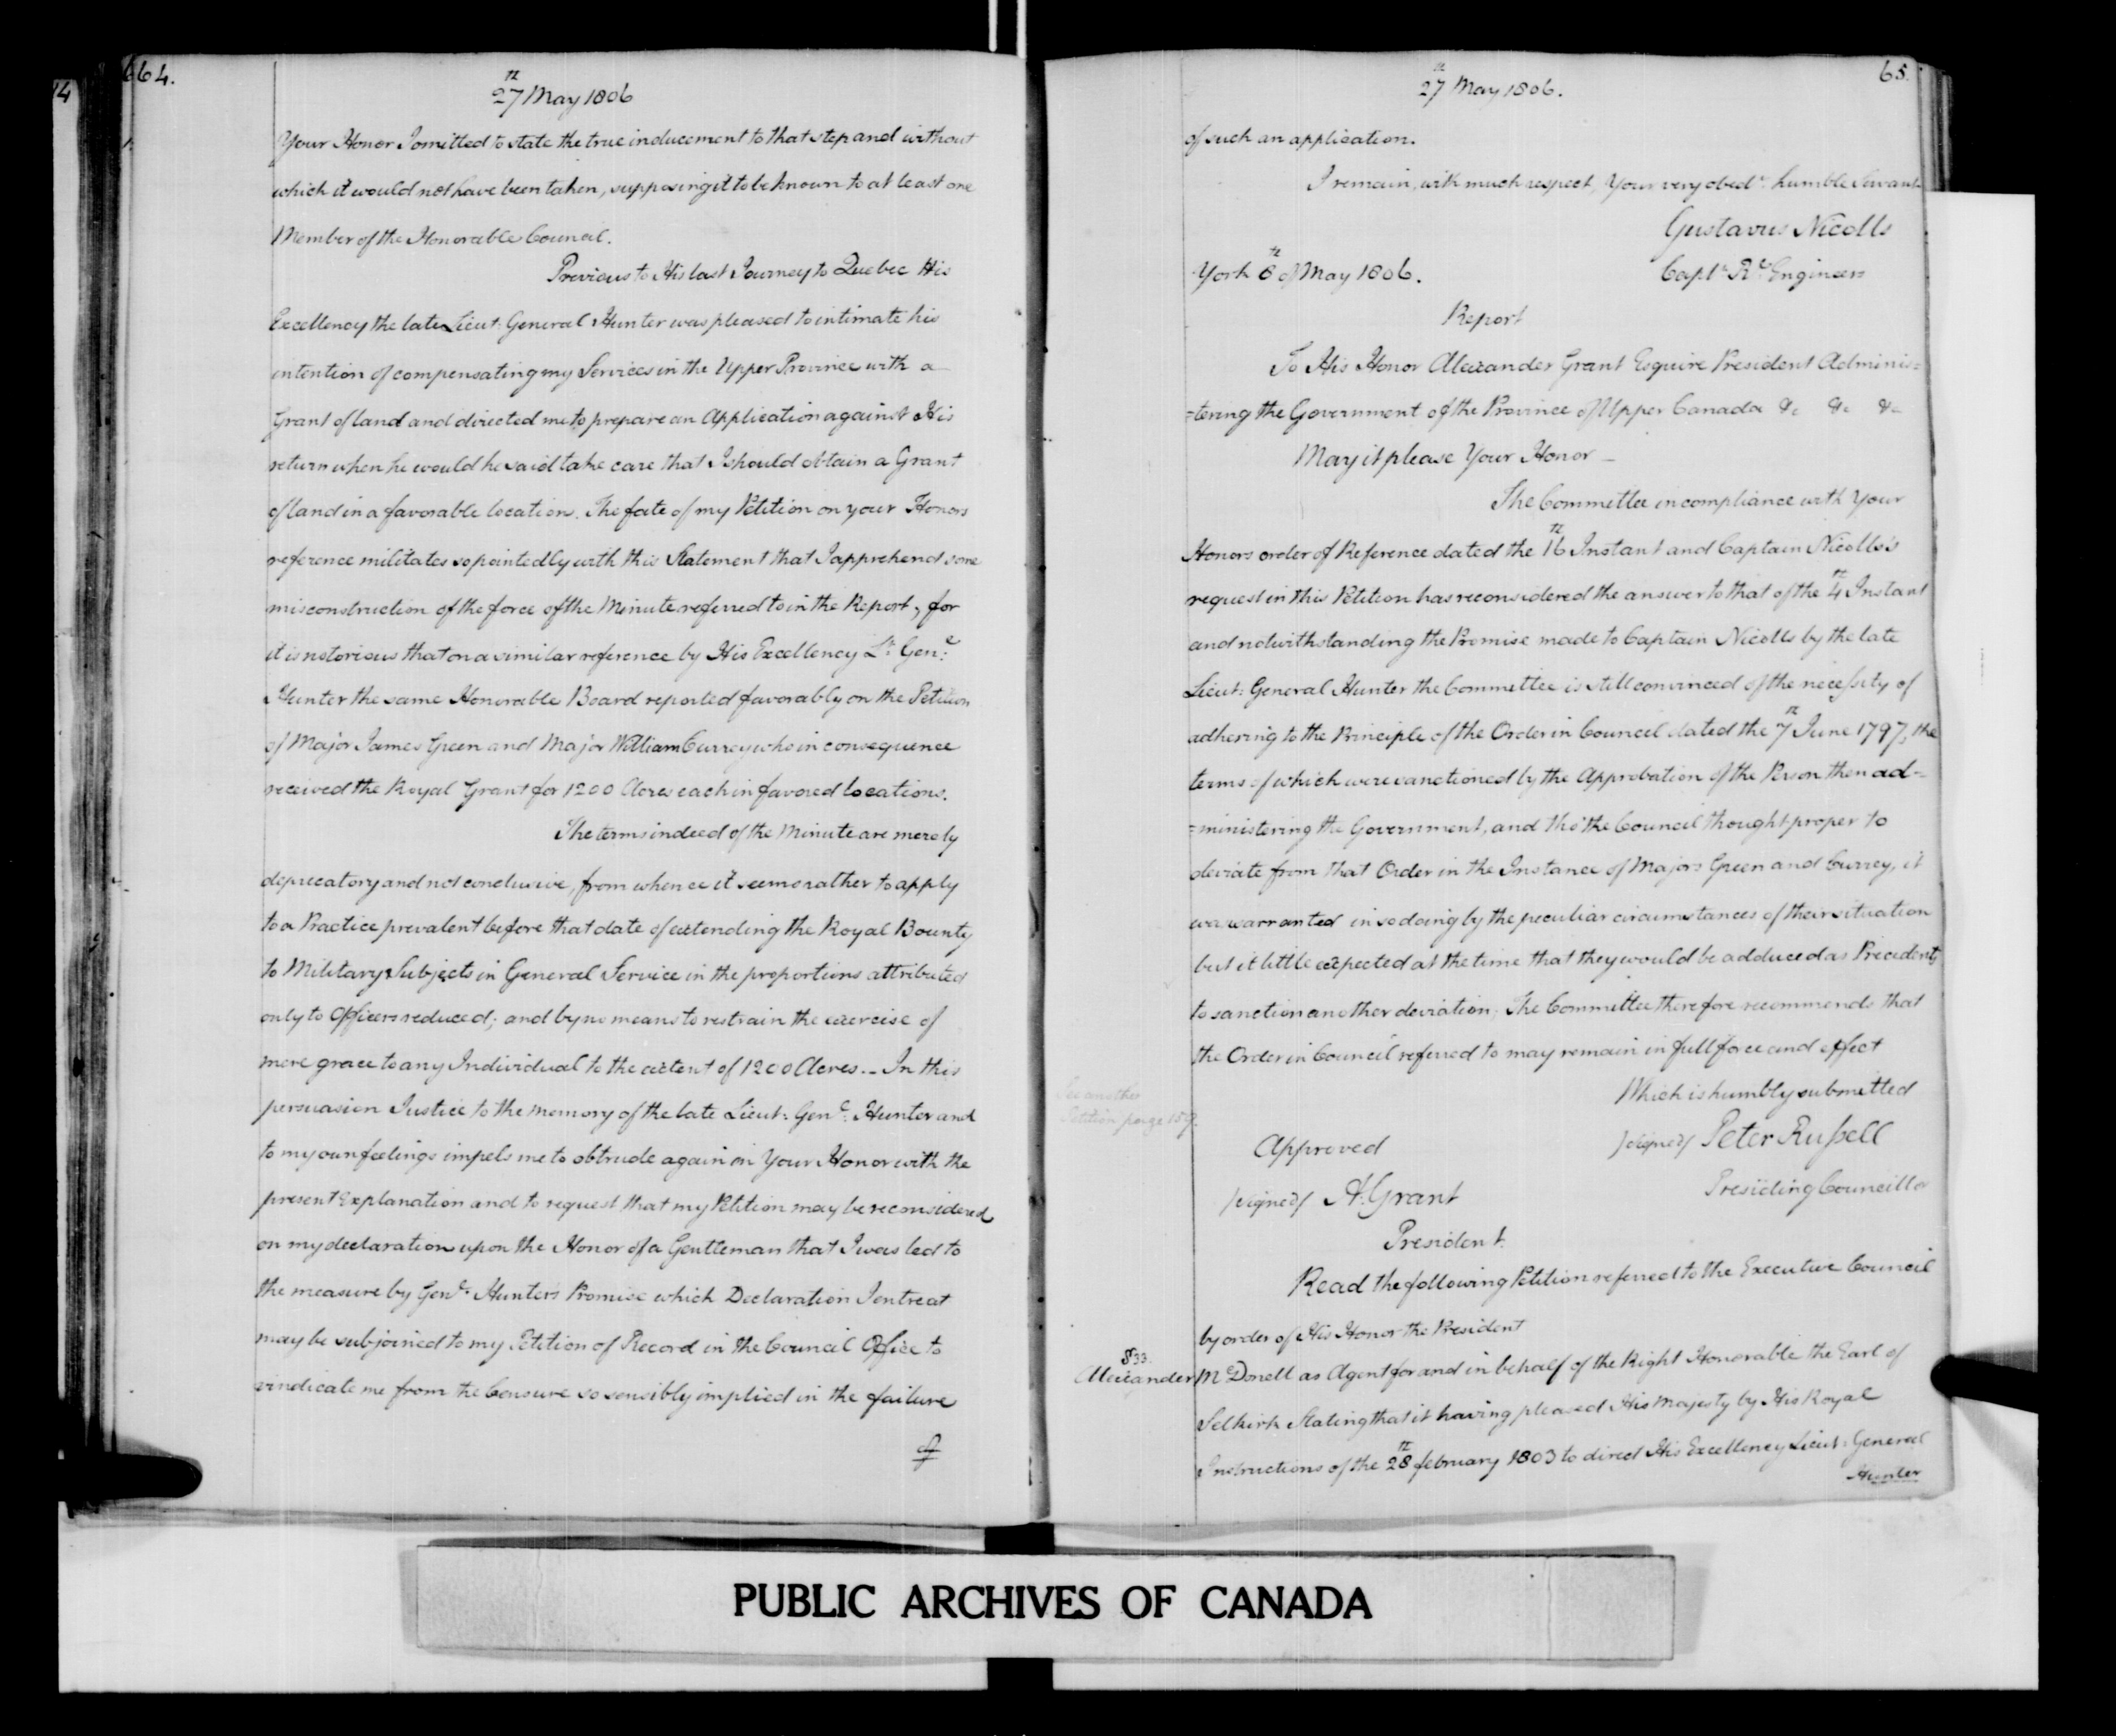 64.
27th May 1806
Your Honor I omitted to state the true inducement to that step and without
which it would not have been taken, supposing it to be known to at least one
Member of the Honorable Council.
Previous to His last Journey to Quebec His
Excellency the late Lieut: General Hunter was pleased to intimate his
intention of compensating my Services in the Upper Province with a
Grant of land and directed me to prepare an Application against His
return when he would he said take care that I should obtain a Grant
of land in a favorable location. The fate of my Petition on your Honors
reference militates so pointedly with this Statement that I apprehend some
misconstruction of the force of the Minute referred to in the Report, for
it is notorious that on a similar reference by His Excellency Lt. Genl.
Hunter the same Honorable Board reported favorably on the Petition
of Major James Green and Major William Currey who in consequence
received the Royal Grant for 1200 Acres each in favored locations.
The terms indeed of the Minute are merely
deprecatory and not conclusive, from whence it seems rather to apply
to a Practice prevalent before that date of extending the Royal Bounty
to Military Subjects in General Service in the proportions attributed
only to Officers reduced; and by no means to restrain the exercise of
mere grace to any Individual to the extent of 1200 Acres.. In this
persuasion Justice to the memory of the late Lieut: Genl. Hunter and
to my own feelings impels me to obtrude again on Your Honor with the
present Explanation and to request that my Petition may be reconsidered
on my declaration upon the Honor of a Gentleman that I was led to
the measure by Genl. Hunter's Promise which Declaration I entreat
may be subjoined to my Petition of Record in the Council Office to
vindicate me from the Censure so sensibly implied in the failure
of
65.
27th May 1806.
of such an application.
I remain, with much respect, Your very obedt. humble Servant
Gustavus Nicolls
York 8th of May 1806.
Captn. Rl. Engineers
Report
To His Honor Alexander Grant Esquire President Adminis=
=tering the Government of the Province of Upper Canada &c &c &c
May it please Your Honor _
The Committee in compliance with Your
Honors order of Reference dated the 16th Instant and Captain Nicolls's
request in this Petition has reconsidered the answer to that of the 4th Instant
and notwithstanding the Promise made to Captain Nicolls by the late
Lieut: General Hunter the Committee is still convinced of the necessity of
adhering to the Principle of the Order in Council dated the 7th June 1797, the
terms of which were sanctioned by the Approbation of the Person then ad=
=ministering the Government, and tho' the Council thought proper to
deviate from that Order in the Instance of Majors Green and Currey, it
was warranted in so doing by the peculiar circumstances of their situation
but it little expected at the time that they would be adduced as Precedents
to sanction another deviation. The Committee therefore recommends that
the Order in Council referred to may remain in full force and effect
Which is humbly submitted
See another
Petition page 159.
Approved
/signed/ Peter Russell
Presiding Councillor
/signed/ A. Grant
President.
Read the following Petition referred to the Executive Council
by order of His Honor the President
S33.
Alexander McDonell as Agent for and in behalf of the Right Honorable the Earl of
Selkirk Stating that it having pleased His Majesty by His Royal
Instructions of the 28th february 1803 to direct His Excellency Lieut: General
Hunter
PUBLIC ARCHIVES OF CANADA